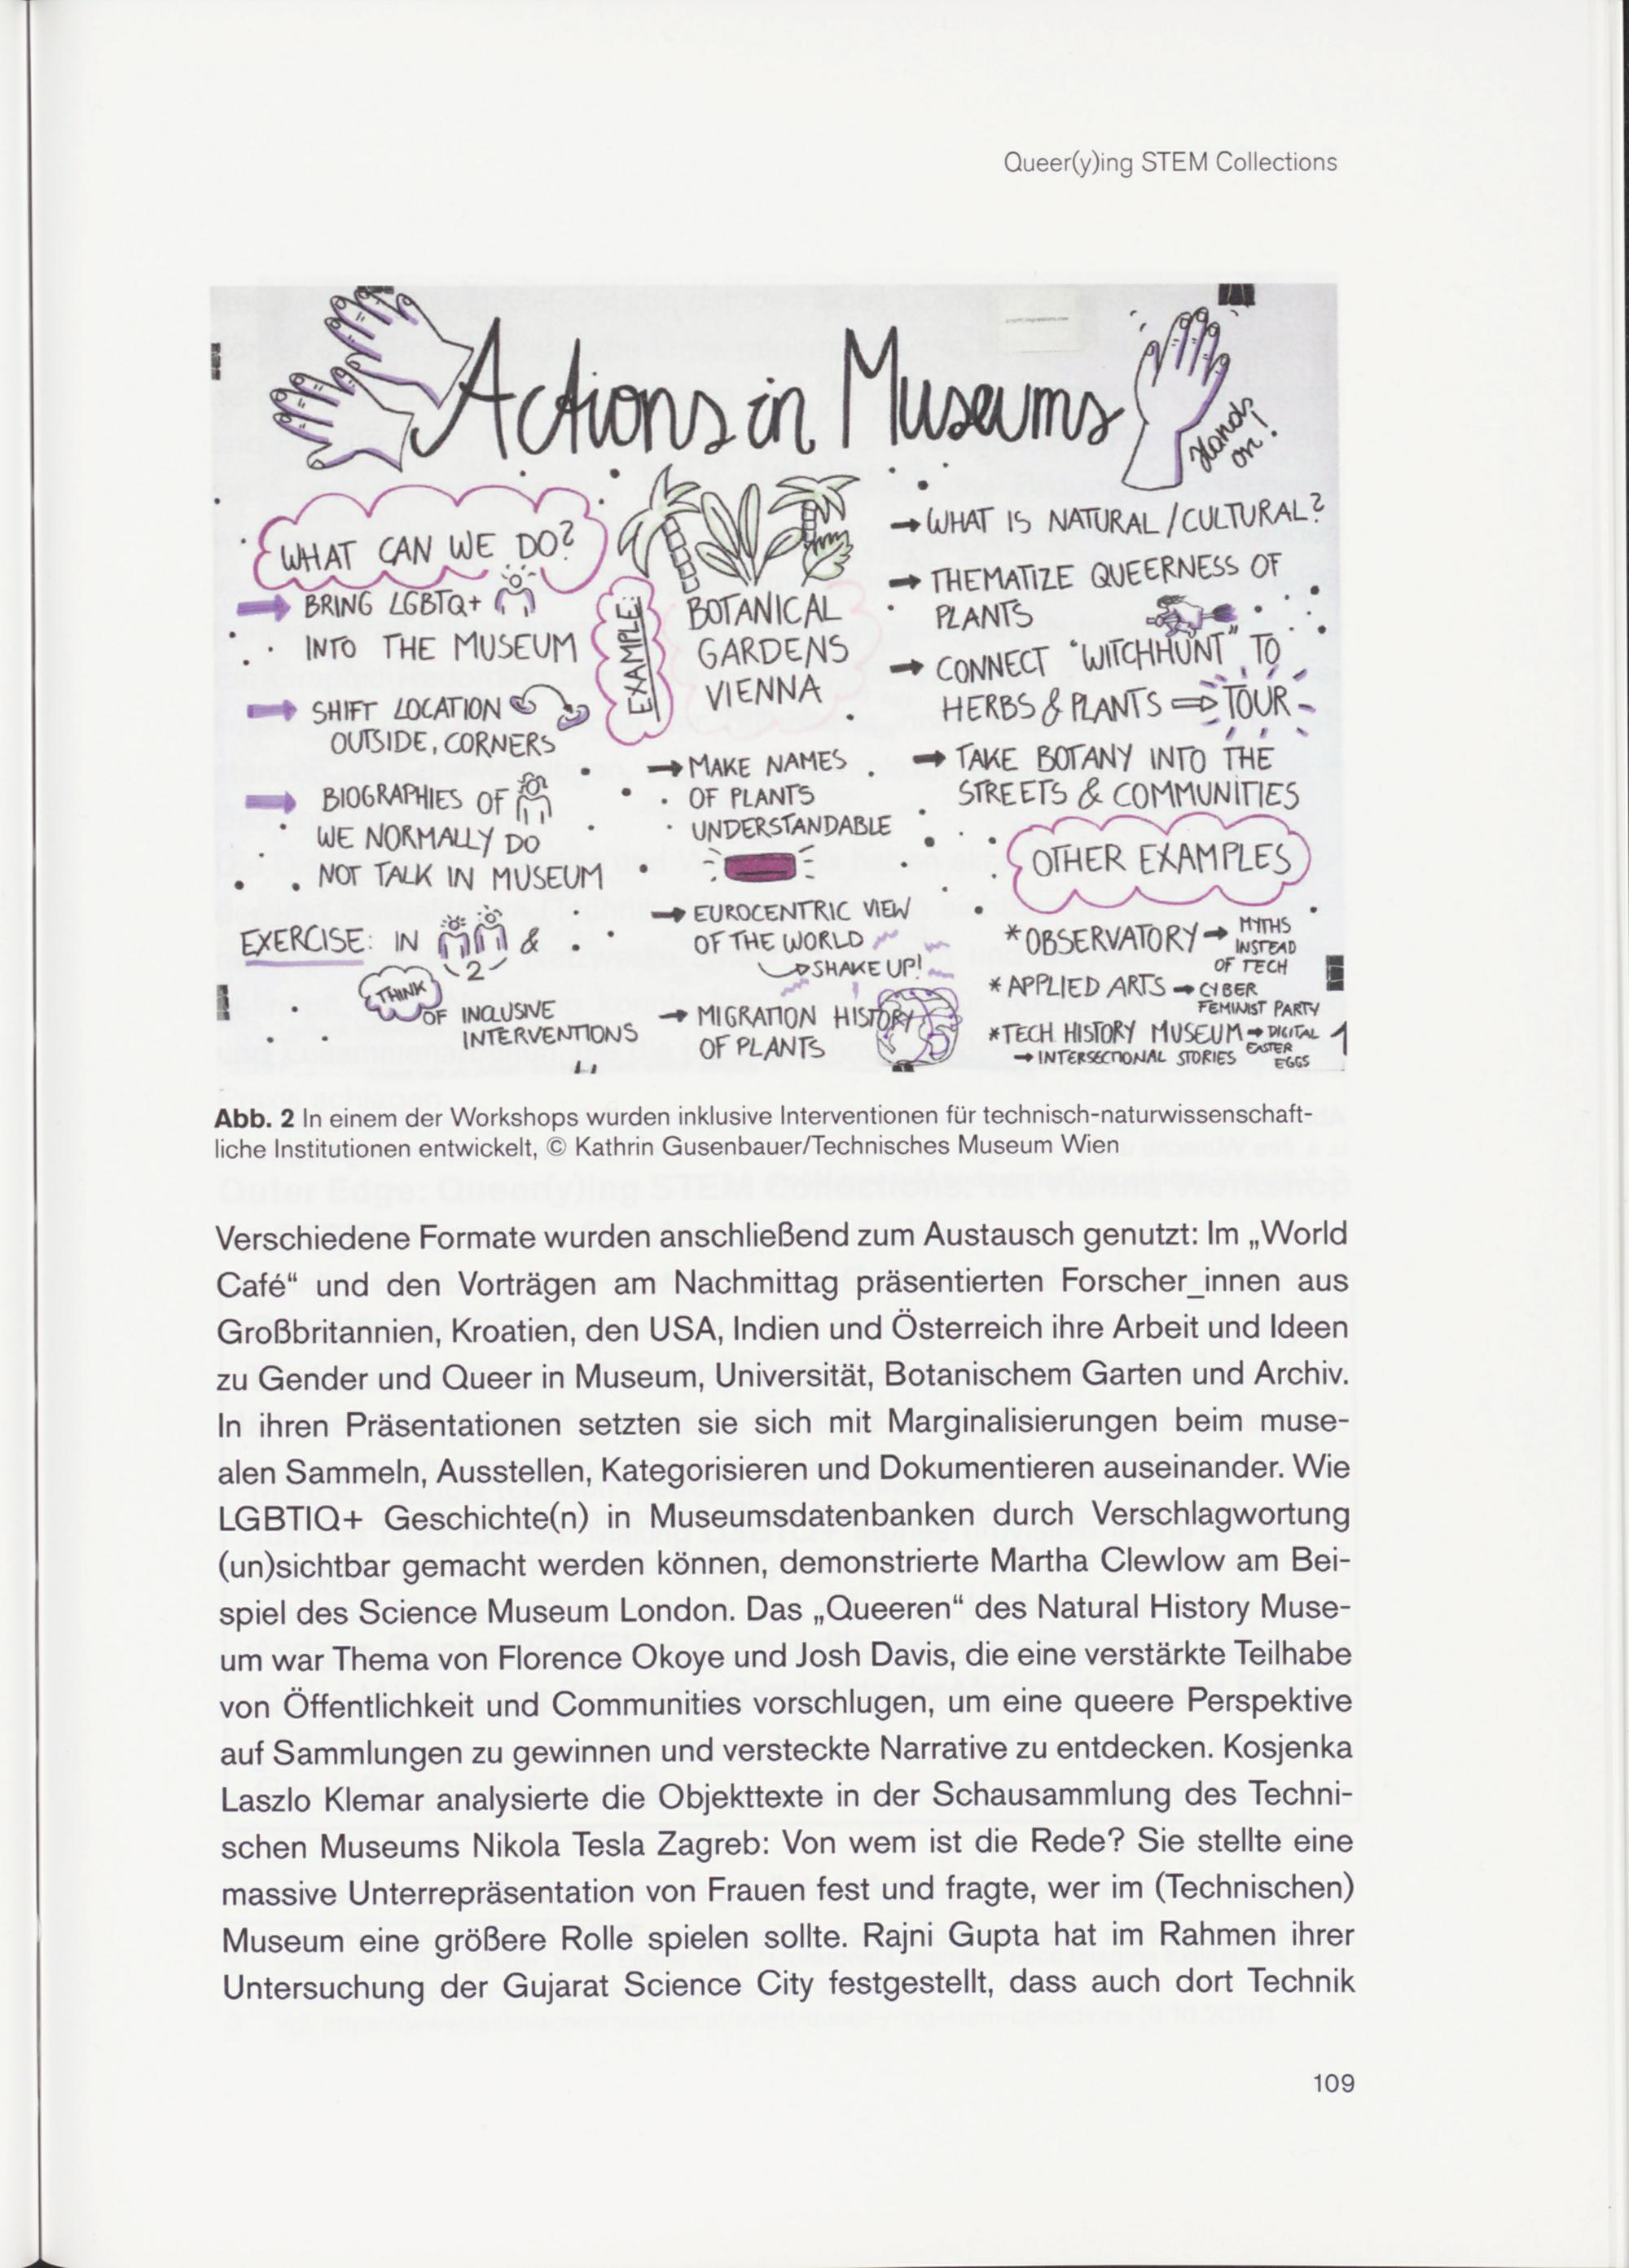 Queer(y)ing STEM Collections
Actions in Museums
Hands
on!
WHAT CAN WE DO?
BRING LGBTQ+
INTO THE MUSEUM
SHIFT LOCATION
OUTSIDE, CORNERS
BIOGRAPHIES OF
WE NORMALLY DO
NOT TALK IN MUSEUM
EXERCISE: IN &
2
THINK
OF INCLUSIVE
INTERVENTIONS
EXAMPLE:
BOTANICAL
GARDENS
VIENNA
→ MAKE NAMES
OF PLANTS
UNDERSTANDABLE
→ EUROCENTRIC VIEW
OF THE WORLD
→ SHAKE UP!
→ MIGRATION HISTORY
OF PLANTS
→ WHAT IS NATURAL/CULTURAL?
→ THEMATIZE QUEERNESS OF
PLANTS
→ CONNECT "WITCHHUNT" TO
HERBS & PLANTS ⇒ TOUR
→ TAKE BOTANY INTO THE
STREETS & COMMUNITIES
OTHER EXAMPLES
* OBSERVATORY → MYTHS
INSTEAD
OF TECH
* APPLIED ARTS → CYBER
FEMINIST PARTY
* TECH HISTORY MUSEUM → DIGITAL
EASTER
EGGS
→ INTERSECTIONAL STORIES
Abb. 2 In einem der Workshops wurden inklusive Interventionen für technisch-naturwissenschaft-
liche Institutionen entwickelt, © Kathrin Gusenbauer/Technisches Museum Wien
Verschiedene Formate wurden anschließend zum Austausch genutzt: Im „World
Café“ und den Vorträgen am Nachmittag präsentierten Forscher_innen aus
Großbritannien, Kroatien, den USA, Indien und Österreich ihre Arbeit und Ideen
zu Gender und Queer in Museum, Universität, Botanischem Garten und Archiv.
In ihren Präsentationen setzten sie sich mit Marginalisierungen beim muse-
alen Sammeln, Ausstellen, Kategorisieren und Dokumentieren auseinander. Wie
LGBTIQ+ Geschichte(n) in Museumsdatenbanken durch Verschlagwortung
(un)sichtbar gemacht werden können, demonstrierte Martha Clewlow am Bei-
spiel des Science Museum London. Das „Queeren“ des Natural History Muse-
um war Thema von Florence Okoye und Josh Davis, die eine verstärkte Teilhabe
von Öffentlichkeit und Communities vorschlugen, um eine queere Perspektive
auf Sammlungen zu gewinnen und versteckte Narrative zu entdecken. Kosjenka
Laszlo Klemar analysierte die Objekttexte in der Schausammlung des Techni-
schen Museums Nikola Tesla Zagreb: Von wem ist die Rede? Sie stellte eine
massive Unterrepräsentation von Frauen fest und fragte, wer im (Technischen)
Museum eine größere Rolle spielen sollte. Rajni Gupta hat im Rahmen ihrer
Untersuchung der Gujarat Science City festgestellt, dass auch dort Technik
109